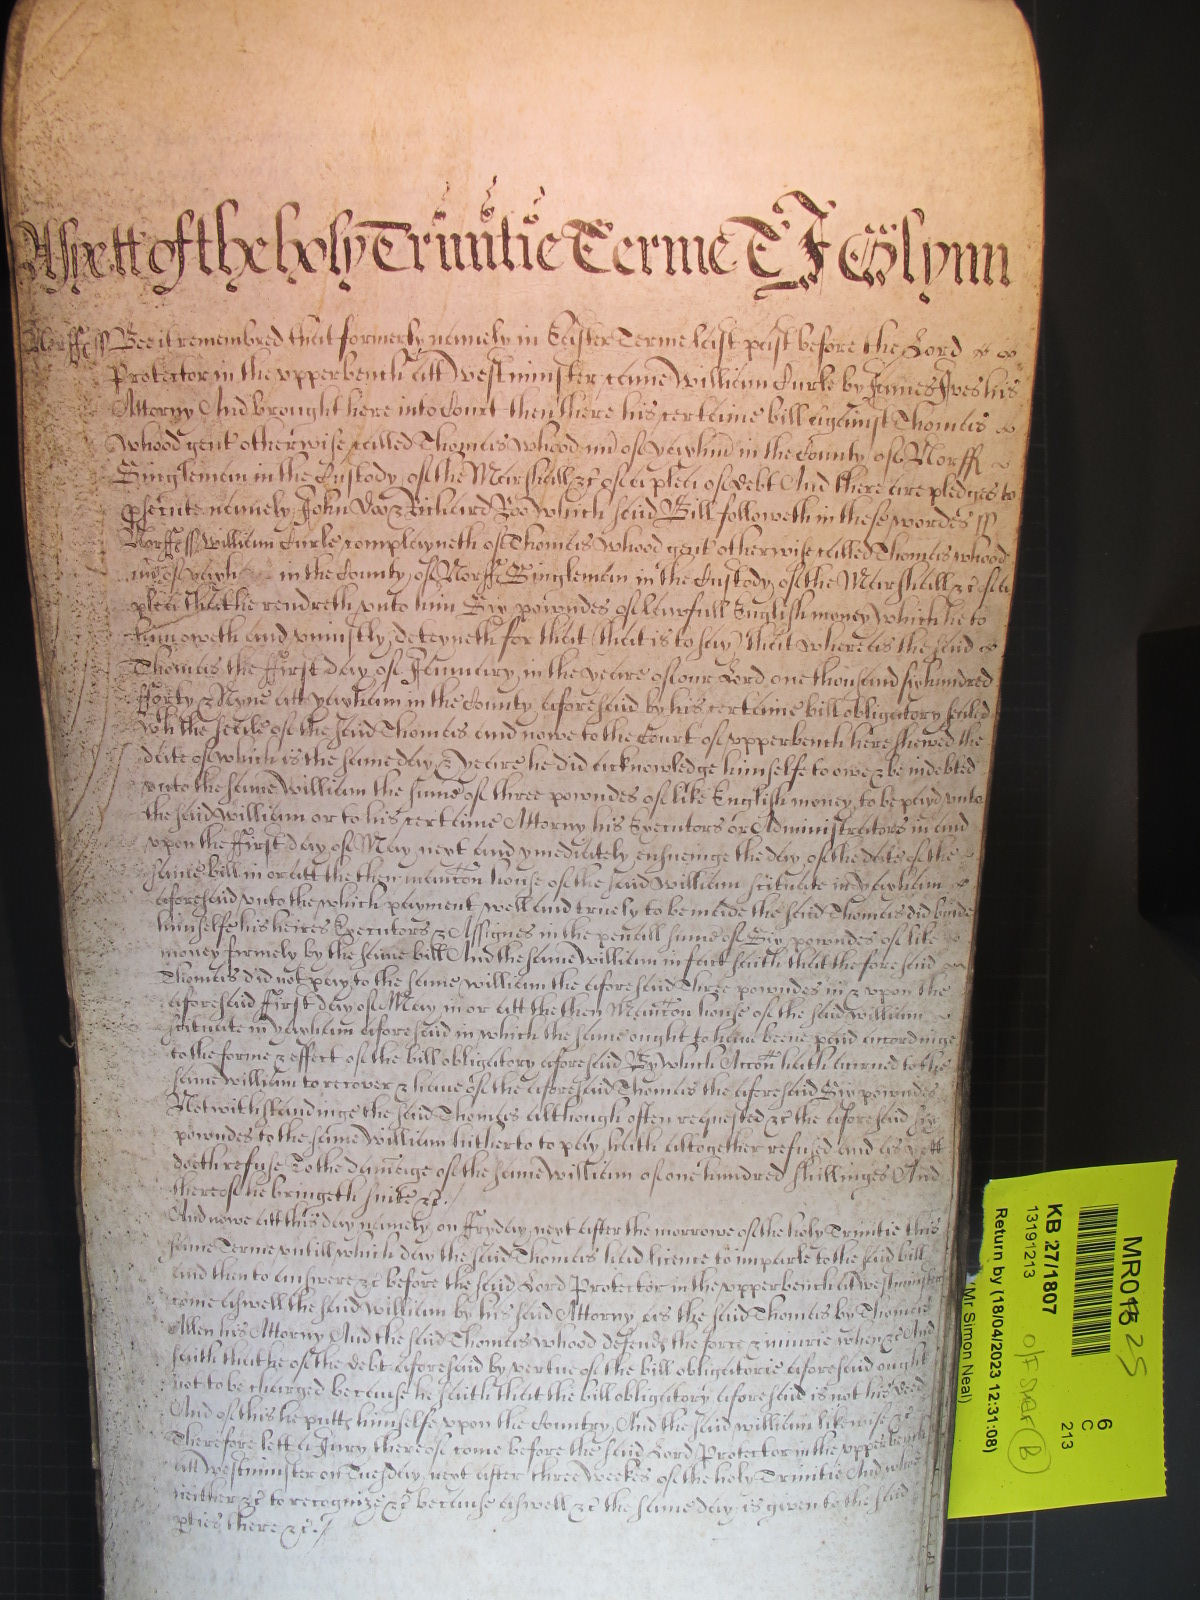 As yett of the holy Trinitie Terme T J Glynn
Norff ss Bee it remembred that formerly namely in Easter Terme last past before the Lord
Protector in the upper bench att Westminster came William Curle by James Ives his
Attorny And brought here into Court then there his certaine bill against Thomas
Whood gent otherwise called Thomas Whood of yaxham in the County of Norff
Singleman in the Custody of the Marshall &c of a plea of debt And there are pledges to
psecute namely John Doo & Richard Roo which said Bill followeth in these wordes ss
Norff ss William Curle complayneth of Thomas Whood gent otherwise called Thomas Whood
of in the County of Norff Singleman in the Custody of the Marshall &c of a
plea that he rendreth unto him Six powndes of lawfull English money which he to
him oweth and uniustly deteyneth for that (that is to say) that whereas the said
Thomas the ffirst day of January in the yeare of our Lord one thousand six hundred
fforty & Nyne att yaxham in the County aforesaid by his certaine bill obligatory sealed
with the seale of the said Thomas and nowe to the Court of upper bench here shewed the
date of which is the same day & yeare he did acknowledge himselfe to owe & be indebted
unto the same William the sume of three powndes of like English money to be payd unto
the said William or to his certaine Attorny his Executors or Administrators in and
upon the ffirst day of May next and ymediately ensueinge the day of the date of the
same bill in or att the then mancon house of the said William scituate in yaxham
aforesaid unto the which payment well and truely to be made the said Thomas did binde
himselfe his heires Executors & Assignes in the penall sume of Six powndes of like
money formely by the same bill And the same William in fact saith that the foresaid
Thomas did not pay to the same William the aforesaid Three powndes in & upon the
aforesaid ffirst day of May in or att the then Mancon house of the said William
scituate in yaxham aforesaid in which the same ought to have beene paid accordinge
to the forme & effect of the bill obligatory aforesaid By which Accon hath acrued to the
same William to recover & have of the aforesaid Thomas the aforesaid Six powndes
Notwithstandinge the said Thomas although often requested &c the aforesaid six
powndes to the same William hitherto to pay hath altogether refused and as yett
doeth refuse To the damage of the same William of one hundred shillinges And
thereof he bringeth suite &c.
And nowe att this day namely on ffryday next after the morrowe of the holy Trinitie this
same Terme untill which day the said Thomas had licence to imparle to the said bill
and then to answere &c before the said Lord Protector in the upper bench att Westminster
come aswell the said William by his said Attorny as the said Thomas by Thomas
Allen his Attorny And the said Thomas Whood defends the force & iniurie when &c And
saith that he of the debt aforesaid by vertue of the bill obligatorie aforesaid ought
not to be charged because he saith that the bill obligatory aforesaid is not his deed
And of this he putts himselfe upon the Countrey And the said William likewise &c
Therefore lett a Jury thereof come before the said Lord Protector in the upper bench
att Westminster on Tuesday next after three weekes of the holy Trinitie And who
neither &c to recognize &c because aswell &c the same day is given to the said
pties there &c.
MR018 25
6
C
213
KB 27/1807
13191213
B
Return by (18/04/2023 12:31:08)
(Mr Simon Neal)